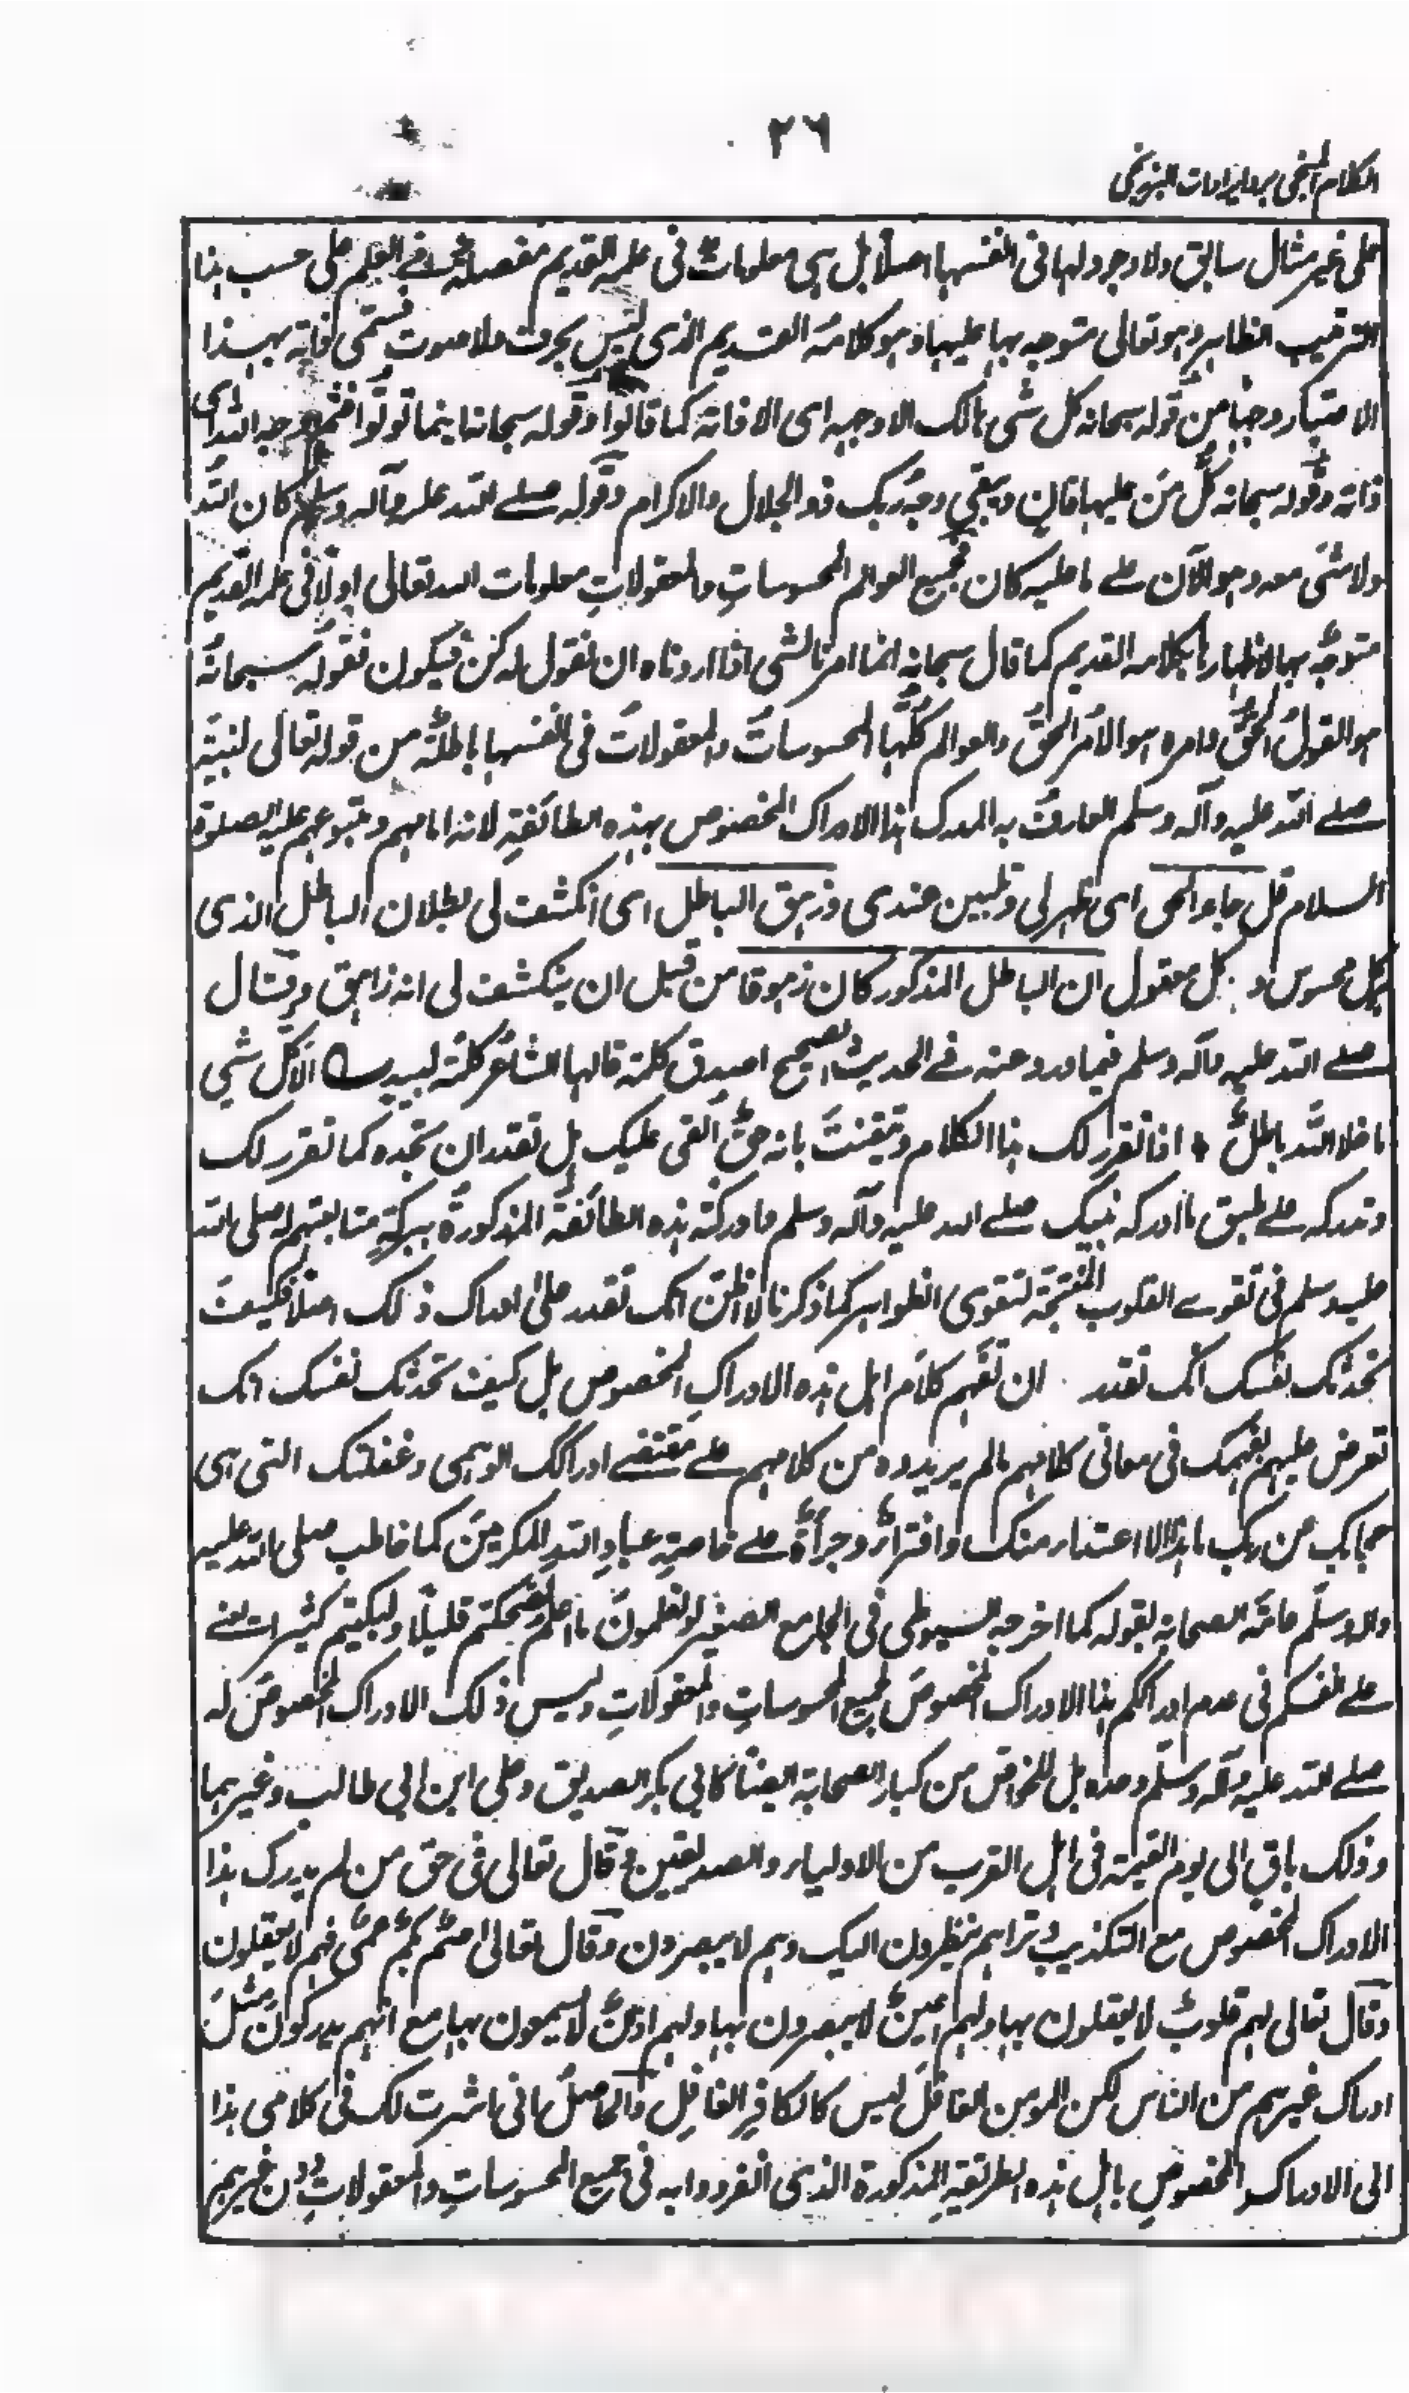 ٢٦
الكلام المنجي برد ايرادات البرزنجي
على غير مثال سابق ولا وجود لها في انفسها اصلا بل هي معلومات في علمه القديم مفصلة في العلم على حسب هذا
الترتيب الظاهر وهو تعالى متوجه بها عليها وهو كلامه القديم الذي ليس بحروف ولا صوت فسمى ذاته بهذا
الاعتبار وجها من قوله سبحانه كل شي هالك الا وجهه اي الا ذاته كما قالوا وقوله سبحانه اينما تولوا فثم وجه الله اي
ذاته وقوله سبحانه كُلُّ مَن عليها فانٍ ويبقى وجهُ ربك ذو الجلال والاكرام وقوله صلى الله عليه وآله وسلم كان الله
ولا شئ معه وهو الآن على ما عليه كان فجميع العوالم المحسوساتِ والمعقولاتِ معلومات الله تعالى اولًا في علمه القديم
متوجّه بها لاظهارها بكلامه القديم كما قال سبحانه انما امرنا لشي اذا اردناه ان نقول له كن فيكون فقولُه سبحانه
هو القولُ الحقُّ وامره هو الامرُ الحقُّ والعوالم كُلُّها المحسوساتُ والمعقولاتُ في انفسها باطلةٌ من قوله تعالى لنبيّه
صلى الله عليه وآله وسلم العارف به المدرك هذا الادراك المخصوص بهذه الطائفةِ لانه امامهم ومتبوعهم عليه الصلوة
السلام قل جاء الحق اى ظهر لي وتبين عندى وزهق الباطل اى انكشف لى بطلان الباطل الذى
بكل محسوس و بكل معقول ان الباطل المذكور كان زهوقا من قبل ان ينكشف لى انه زاهق وقال
صلى الله عليه وآله وسلم فيما ورد عنه في الحديث الصحيح اصدق كلمة قالها الشاعر كلمة لبيد الا كل شي
ما خلا اللّه باطلُ ٭ اذا تقرر لك هذا الكلام وتيقنتَ بانه حقٌّ اُلقى عليك هل تقدر ان تجده كما تقرر لك
وتدركه على طبق ما ادركه نبيك صلى الله عليه وآله وسلم وادركته هذه الطائفة المذكورة ببركةِ متابعتهم له صلى الله
عليه وسلم في تقوى القلوب المنتجة لتقوى الظواهر كما ذكرنا لا اظن انك تقدر على ادراك ذلك اصلا فكيف
تحدثك نفسك انك تقدر ان تفهم كلام اهل هذه الادراكِ المخصوص بل كيف تحدثك نفسك انك
تعرض عليهم بفهمك في معاني كلامهم ما لم يريدوه من كلامهم على مقتضى ادراكك الوهمى وغفلتك التى هى
حجابك من ربك ما هذا الا اعتذار منك وافتراءٌ وجرأةٌ على خاصةِ عبادِ اللّه المكرمين كما خاطب صلى الله عليه
وآله وسلّم عامّةَ الصحابةِ بقوله كما اخرجه السيوطى في الجامع الصغير لو تعلمون ما اعلم لضحكتم قليلًا ولبكيتم كثيرا يعنى
على انفسكم في عدم ادراككم هذا الادراك المخصوص لجميع المحسوساتِ والمعقولاتِ وليس ذلك الادراك المخصوص له
صلى الله عليه وآله وسلّم وحده بل للخواص من كبار الصحابة ايضًا كابى بكر الصديق وعلى ابن ابى طالب وغيرهما
وذلك باق الى يوم القيمة في اهل القرب من الاولياء والصديقين وقال تعالى في حق من لم يدرك هذا
الادراك المخصوص مع التكذيب وتراهم ينظرون اليك وهم لا يبصرون وقال تعالى صُمٌّ بُكمٌ عُمىٌ فهم لا يعقلون
وقال تعالى لهم قلوبٌ لا يعقلون بها ولهم اعينٌ لا يبصرون بها ولهم اذنٌ لا يسمعون بها مع انهم يدركون مثل
ادراك غيرهم من الناس لكن المومن الغافل ليس كالكافرِ الغافِل والحاصل انى اشرت لك في كلامى هذا
الى الادراك المخصوص باهل هذه الطريقةِ المذكورة الذى انفردوا به في جميع المحسوساتِ والمعقولاتِ دون غيرهم